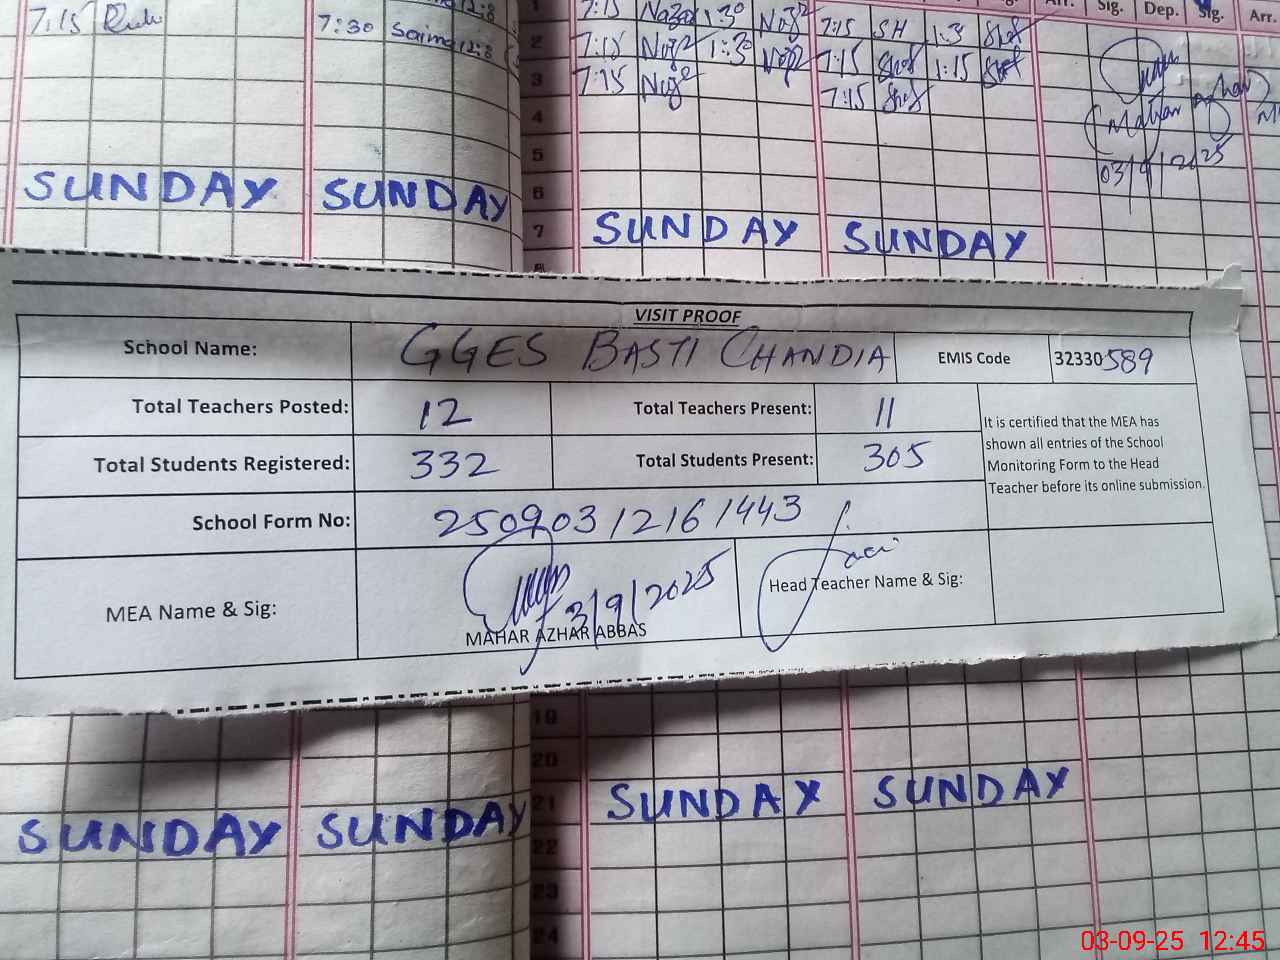 7:15
7:30 Saima 12:8
Sig. Dep. Sig. Arr.
1 7:15 1:30 7:15 SH 1:3
2 7:15 1:30 7:15 1:15
3 7:15 7:15
4
5
6
7
03/9/2025
SUNDAY SUNDAY
SUNDAY SUNDAY
VISIT PROOF
School Name: GGES BASTI CHANDIA EMIS Code 32330589
Total Teachers Posted: 12 Total Teachers Present: 11
Total Students Registered: 332 Total Students Present: 305
It is certified that the MEA has
shown all entries of the School
Monitoring Form to the Head
Teacher before its online submission.
School Form No: 25090312161443
MEA Name & Sig: 3/9/2025
MAHAR AZHAR ABBAS
Head Teacher Name & Sig:
19
20
21
22
23
24
SUNDAY SUNDAY
SUNDAY SUNDAY
03-09-25 12:45